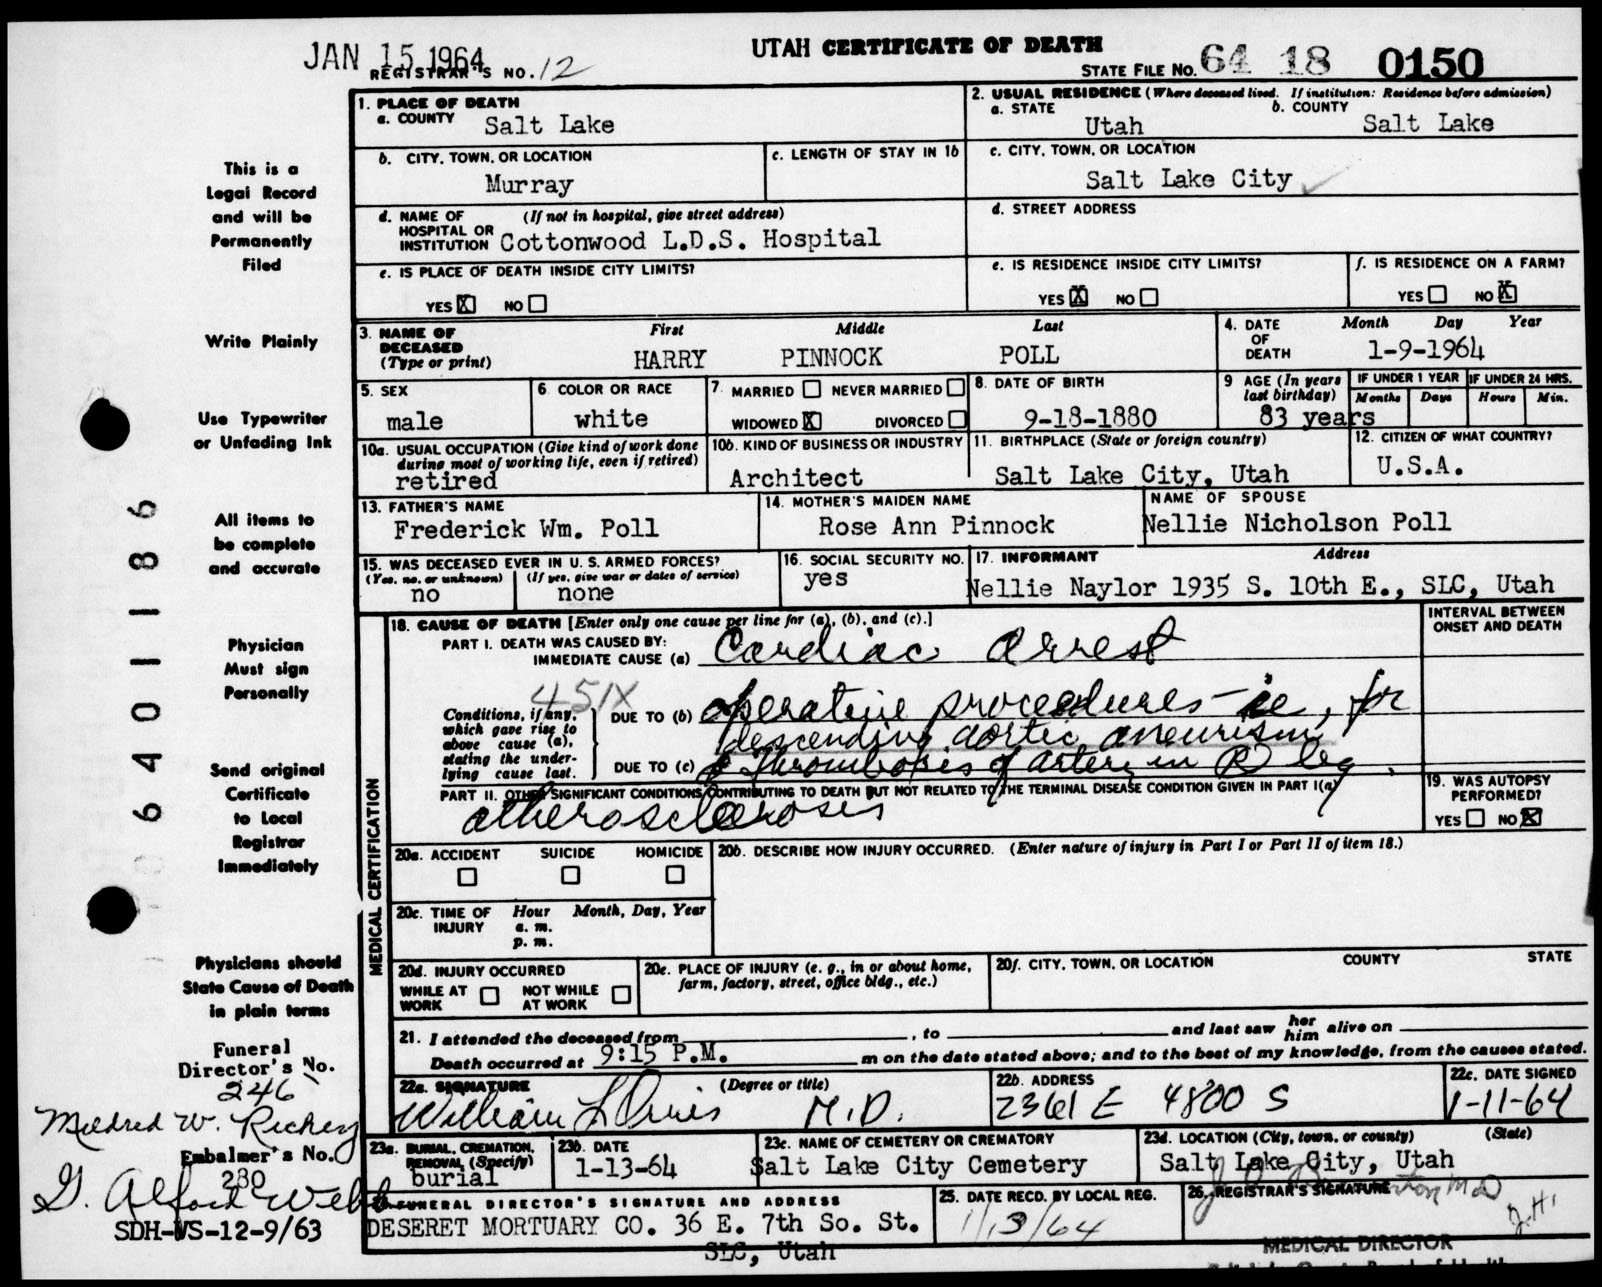 JAN 15 1964
UTAH CERTIFICATE OF DEATH
REGISTRAR'S NO. 12
STATE FILE NO. 64 18 0150
This is a
Legal Record
and will be
Permanently
Filed
Write Plainly
Use Typewriter
or Unfading Ink
All items to
be complete
and accurate
Physician
Must sign
Personally
Send original
Certificate
to Local
Registrar
Immediately
Physicians should
State Cause of Death
in plain terms
Funeral
Director's No.
246
Mildred W. Richey
Embalmer's No.
230
G. Alford Webb
SDH-VS-12-9/63
6401186
1. PLACE OF DEATH
a. COUNTY Salt Lake
2. USUAL RESIDENCE (Where deceased lived. If institution: Residence before admission)
a. STATE Utah
b. COUNTY Salt Lake
b. CITY, TOWN, OR LOCATION
Murray
c. LENGTH OF STAY IN 1b
c. CITY, TOWN, OR LOCATION
Salt Lake City
d. NAME OF (If not in hospital, give street address)
HOSPITAL OR
INSTITUTION Cottonwood L.D.S. Hospital
d. STREET ADDRESS
e. IS PLACE OF DEATH INSIDE CITY LIMITS?
YES X NO
e. IS RESIDENCE INSIDE CITY LIMITS?
YES X NO
f. IS RESIDENCE ON A FARM?
YES NO X
3. NAME OF First Middle Last
DECEASED
(Type or print) HARRY PINNOCK POLL
4. DATE Month Day Year
OF
DEATH 1-9-1964
5. SEX
male
6. COLOR OR RACE
white
7. MARRIED NEVER MARRIED
WIDOWED X DIVORCED
8. DATE OF BIRTH
9-18-1880
9 AGE (In years
last birthday)
83 years
IF UNDER 1 YEAR
Months Days
IF UNDER 24 HRS.
Hours Min.
10a. USUAL OCCUPATION (Give kind of work done
during most of working life, even if retired)
retired
10b. KIND OF BUSINESS OR INDUSTRY
Architect
11. BIRTHPLACE (State or foreign country)
Salt Lake City, Utah
12. CITIZEN OF WHAT COUNTRY?
U.S.A.
13. FATHER'S NAME
Frederick Wm. Poll
14. MOTHER'S MAIDEN NAME
Rose Ann Pinnock
NAME OF SPOUSE
Nellie Nicholson Poll
15. WAS DECEASED EVER IN U. S. ARMED FORCES?
(Yes, no, or unknown) (If yes, give war or dates of service)
no none
16. SOCIAL SECURITY NO.
yes
17. INFORMANT Address
Nellie Naylor 1935 S. 10th E., SLC, Utah
MEDICAL CERTIFICATION
18. CAUSE OF DEATH [Enter only one cause per line for (a), (b), and (c).]
INTERVAL BETWEEN
ONSET AND DEATH
PART I. DEATH WAS CAUSED BY:
IMMEDIATE CAUSE (a) Cardiac Arrest
451X
Conditions, if any,
which gave rise to
above cause (a),
stating the under-
lying cause last.
DUE TO (b) operative procedures - ie, for
descending aortic aneurism
DUE TO (c) & Thrombosis of artery in R leg.
PART II. OTHER SIGNIFICANT CONDITIONS CONTRIBUTING TO DEATH BUT NOT RELATED TO THE TERMINAL DISEASE CONDITION GIVEN IN PART I(a)
atherosclerosis
19. WAS AUTOPSY
PERFORMED?
YES NO X
20a. ACCIDENT SUICIDE HOMICIDE
20b. DESCRIBE HOW INJURY OCCURRED. (Enter nature of injury in Part I or Part II of item 18.)
20c. TIME OF Hour Month, Day, Year
INJURY a. m.
p. m.
20d. INJURY OCCURRED
WHILE AT WORK NOT WHILE AT WORK
20e. PLACE OF INJURY (e. g., in or about home,
farm, factory, street, office bldg., etc.)
20f. CITY, TOWN, OR LOCATION COUNTY STATE
21. I attended the deceased from , to and last saw her him alive on
Death occurred at 9:15 P.M. m on the date stated above; and to the best of my knowledge, from the causes stated.
22a. SIGNATURE (Degree or title)
William M.D.
22b. ADDRESS
2361 E 4800 S
22c. DATE SIGNED
1-11-64
23a. BURIAL, CREMATION,
REMOVAL (Specify)
burial
23b. DATE
1-13-64
23c. NAME OF CEMETERY OR CREMATORY
Salt Lake City Cemetery
23d. LOCATION (City, town, or county) (State)
Salt Lake City, Utah
FUNERAL DIRECTOR'S SIGNATURE AND ADDRESS
DESERET MORTUARY CO. 36 E. 7th So. St.
SLC, Utah
25. DATE RECD. BY LOCAL REG.
1/13/64
26. REGISTRAR'S SIGNATURE
MEDICAL DIRECTOR